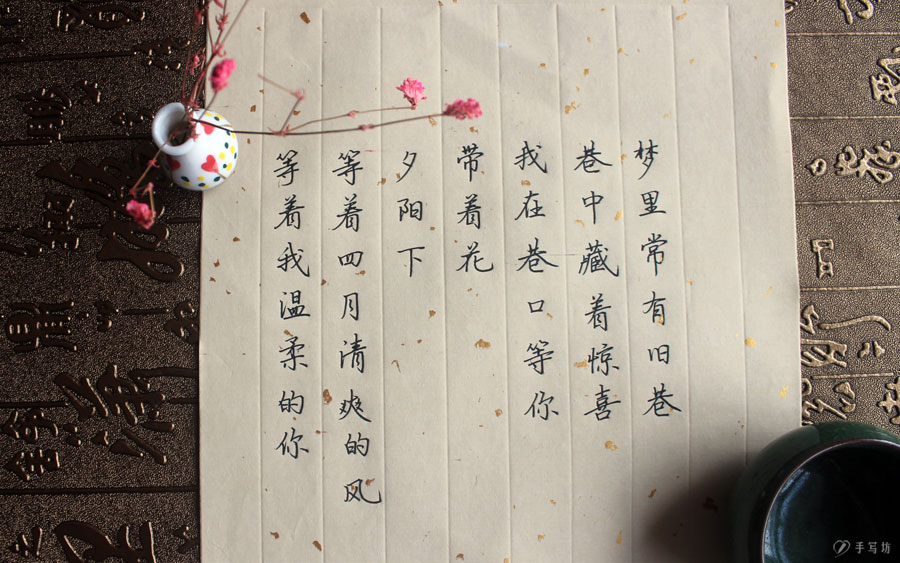 梦里常有旧巷
巷中藏着惊喜
我在巷口等你
带着花
夕阳下
等着四月清爽的风
等着我温柔的你
手写坊